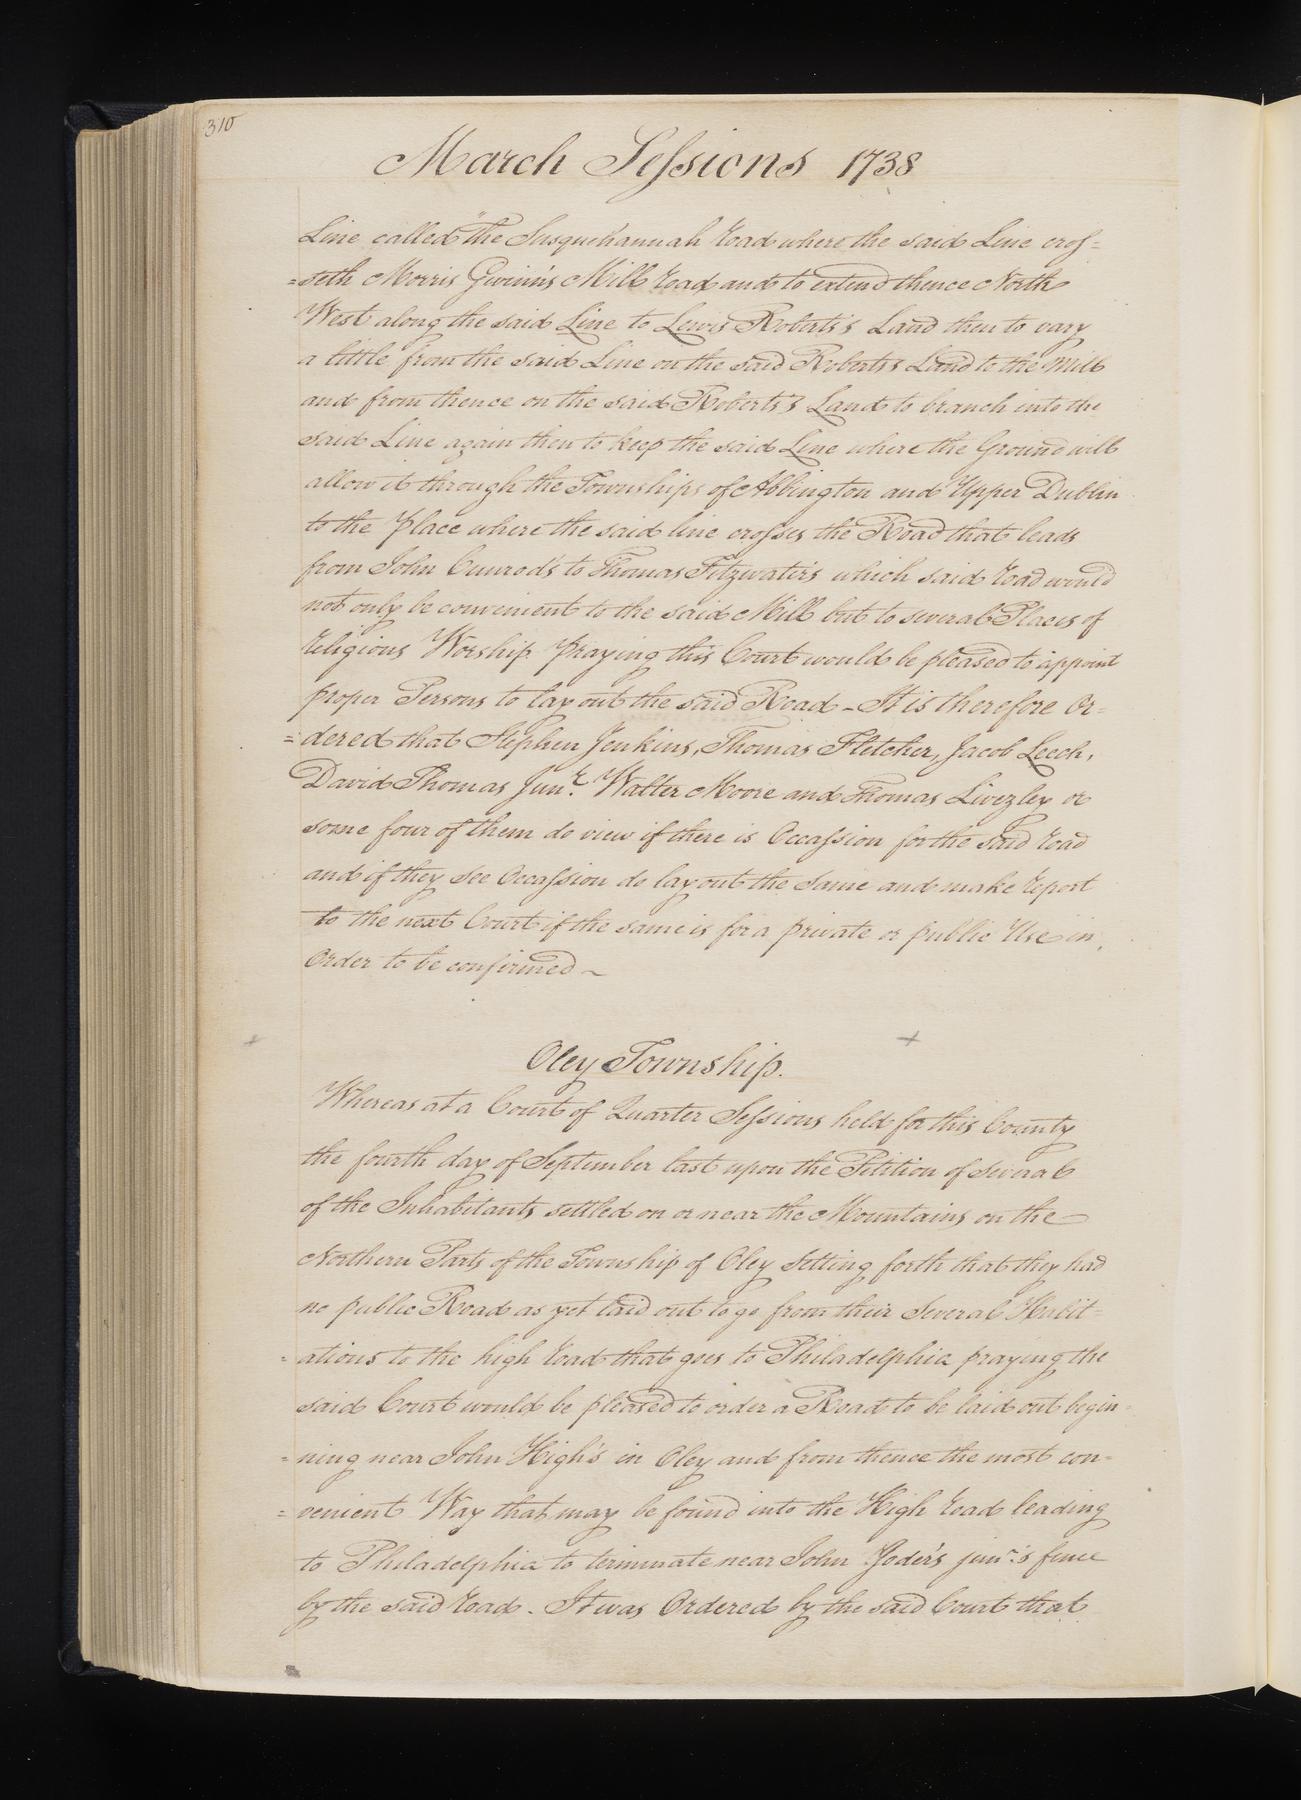 310
March Sessions 1738
Line called "the Susquehannah road where the said Line cros=
=seth Morris Gwinn's Mill road and to extend thence North
West along the said Line to Lewis Roberts's Land then to vary
a little from the said Line on the said Roberts's Land to the Mill
and from thence on the said Roberts's Land to branch into the
said Line again then to keep the said Line where the Ground will
allow it through the Townships of Abbington and Upper Dublin
to the Place where the said line crosses the Road that leads
from John Cunrod's to Thomas Fitzwater's which said road would
not only be convenient to the said Mill but to several Places of
religious Worship praying this Court would be pleased to appoint
proper Persons to lay out the said Road - It is therefore Or=
=dered that Stephen Jenkins, Thomas Fletcher, Jacob Leech,
David Thomas Junr. Walter Moore and Thomas Livezley or
some four of them do view if there is Occassion for the said road
and if they see Occassion do lay out the same and make report
to the next Court if the same is for a private or public Use in
Order to be confirmed ~
Oley Township.
Whereas at a Court of Quarter Sessions held for this County
the fourth day of September last upon the Petition of several
of the Inhabitants settled on or near the Mountains on the
Northern Parts of the Township of Oley Setting forth that they had
no public Road as yet laid out to go from their Several Habit=
=ations to the high road that goes to Philadelphia praying the
said Court would be pleased to order a Road to be laid out begin=
=ning near John High's in Oley and from thence the most con=
=venient Way that may be found into the High road leading
to Philadelphia to terminate near John Yoder's junr.'s fence
by the said road. It was Ordered by the said Court that